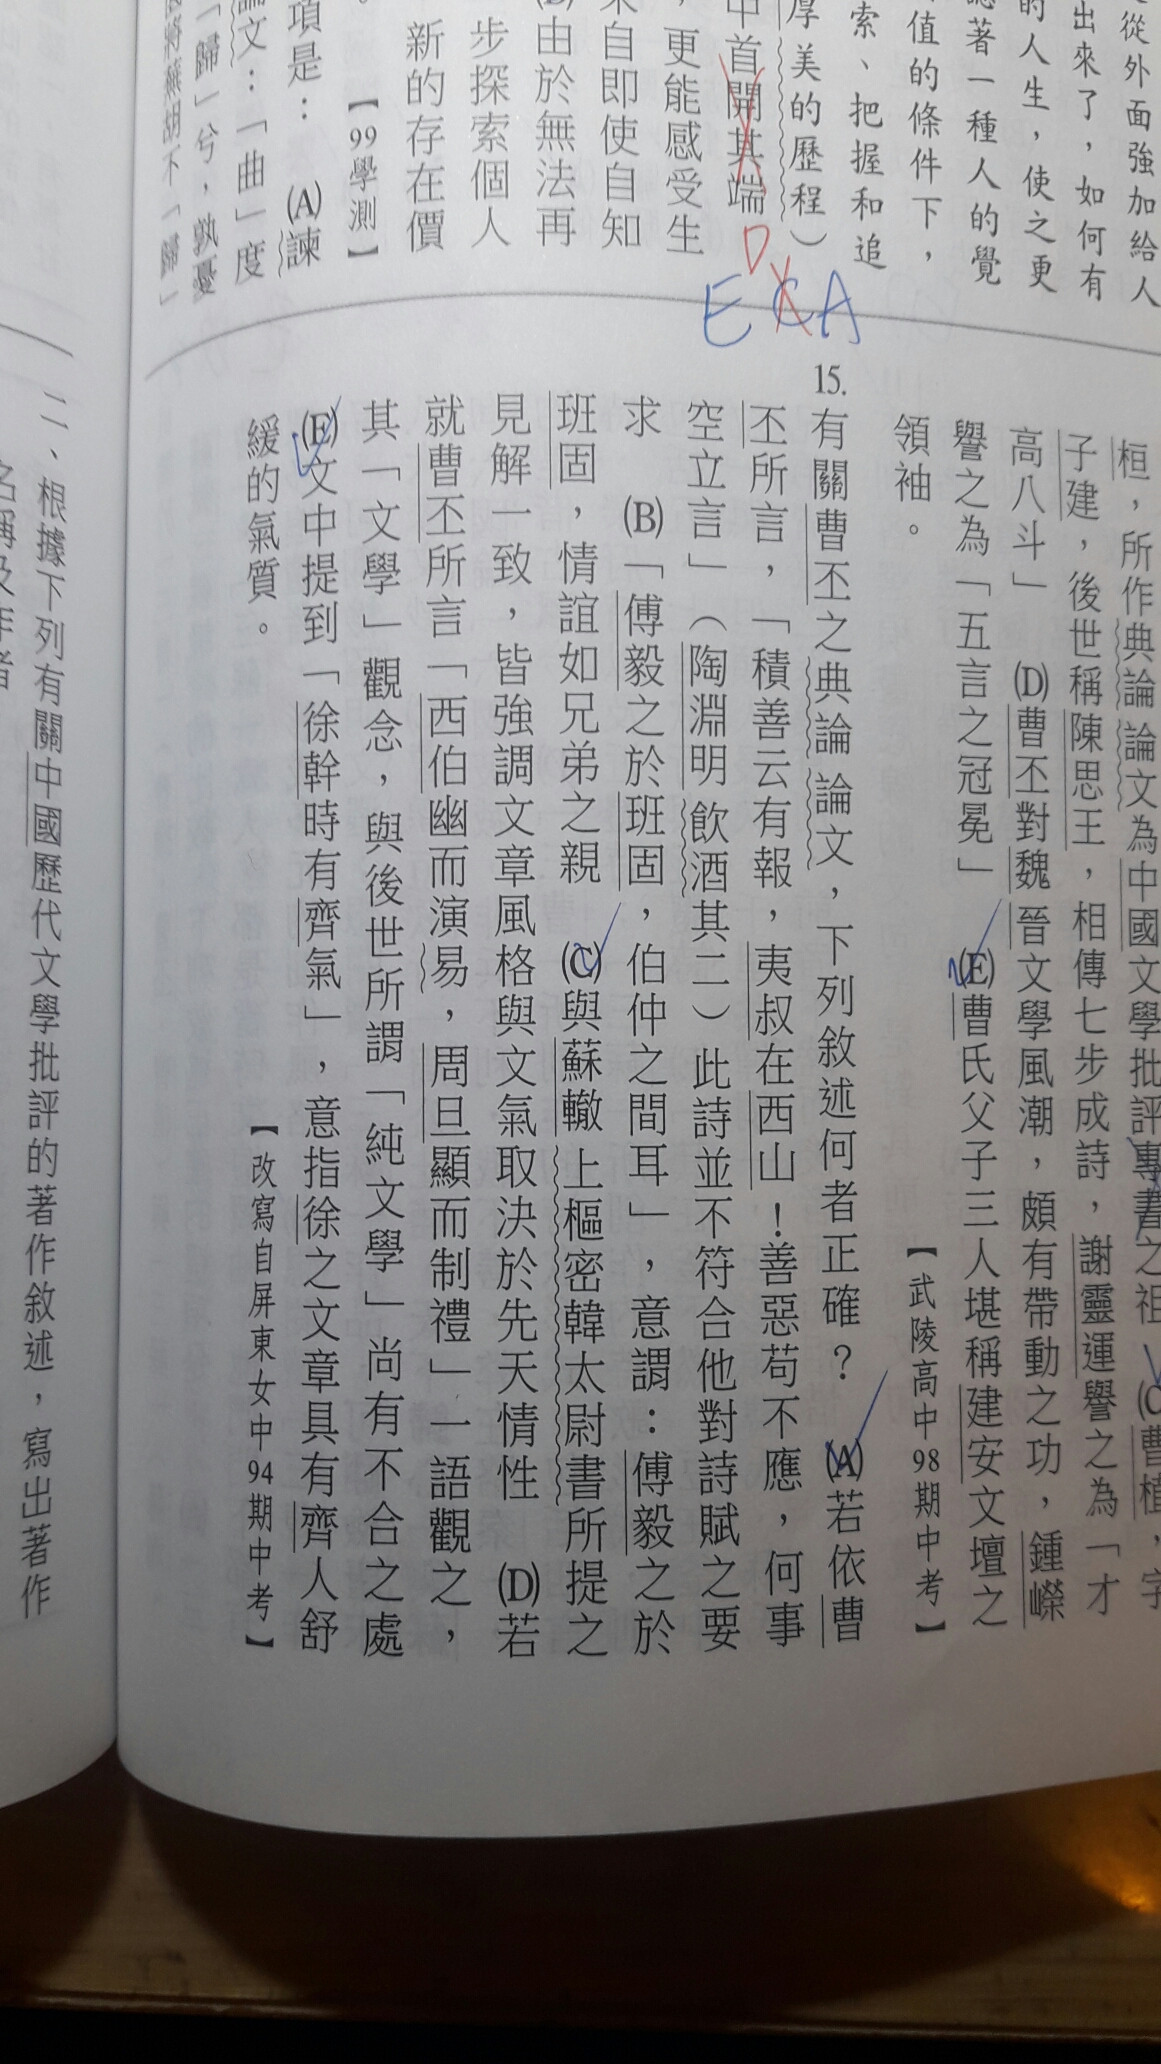 從外面強加給人
出來了，如何有
的人生，使之更
著一種人的覺
值的條件下，
索、把握和追
厚美的歷程）
中首開其端
，更能感受生
來自即使自知
由於無法再
步探索個人
新的存在價
。【99學測】
項是：(A)諫
論文：「曲」度
「歸」兮，孰憂
將蕪胡不「歸」
D
E C A
桓，所作典論論文為中國文學批評專書之祖 (C)曹植，字
子建，後世稱陳思王，相傳七步成詩，謝靈運譽之為「才
高八斗」 (D)曹丕對魏晉文學風潮，頗有帶動之功，鍾嶸
譽之為「五言之冠冕」 (E)曹氏父子三人堪稱建安文壇之
領袖。【武陵高中98期中考】
15.有關曹丕之典論論文，下列敘述何者正確？ (A)若依曹
丕所言，「積善云有報，夷叔在西山！善惡苟不應，何事
空立言」（陶淵明飲酒其二）此詩並不符合他對詩賦之要
求 (B)「傅毅之於班固，伯仲之間耳」，意謂：傅毅之於
班固，情誼如兄弟之親 (C)與蘇轍上樞密韓太尉書所提之
見解一致，皆強調文章風格與文氣取決於先天情性 (D)若
就曹丕所言「西伯幽而演易，周旦顯而制禮」一語觀之，
其「文學」觀念，與後世所謂「純文學」尚有不合之處
(E)文中提到「徐幹時有齊氣」，意指徐之文章具有齊人舒
緩的氣質。【改寫自屏東女中94期中考】
二、根據下列有關中國歷代文學批評的著作敘述，寫出著作
名稱及作者